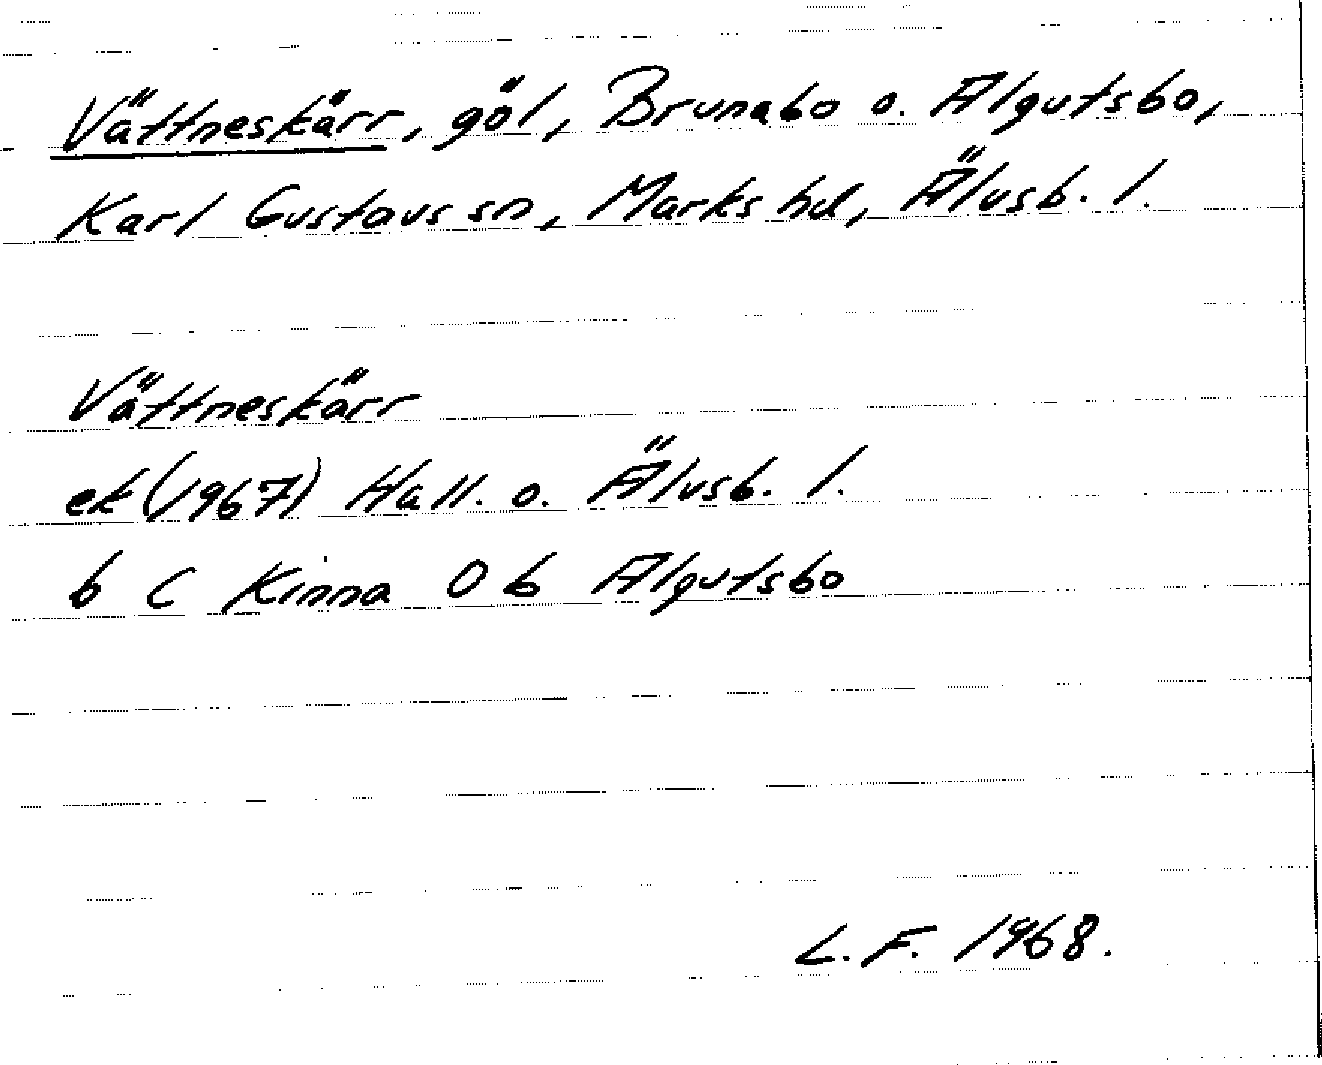 Vättneskärr, göl, Brunabo o. Algutsbo,
Karl Gustavs sn, Marks hd, Älvsb. l.
Vättneskärr
ek (1967) Hall. o. Älvsb. l.
b C Kinna O b Algutsbo
L. F. 1968.